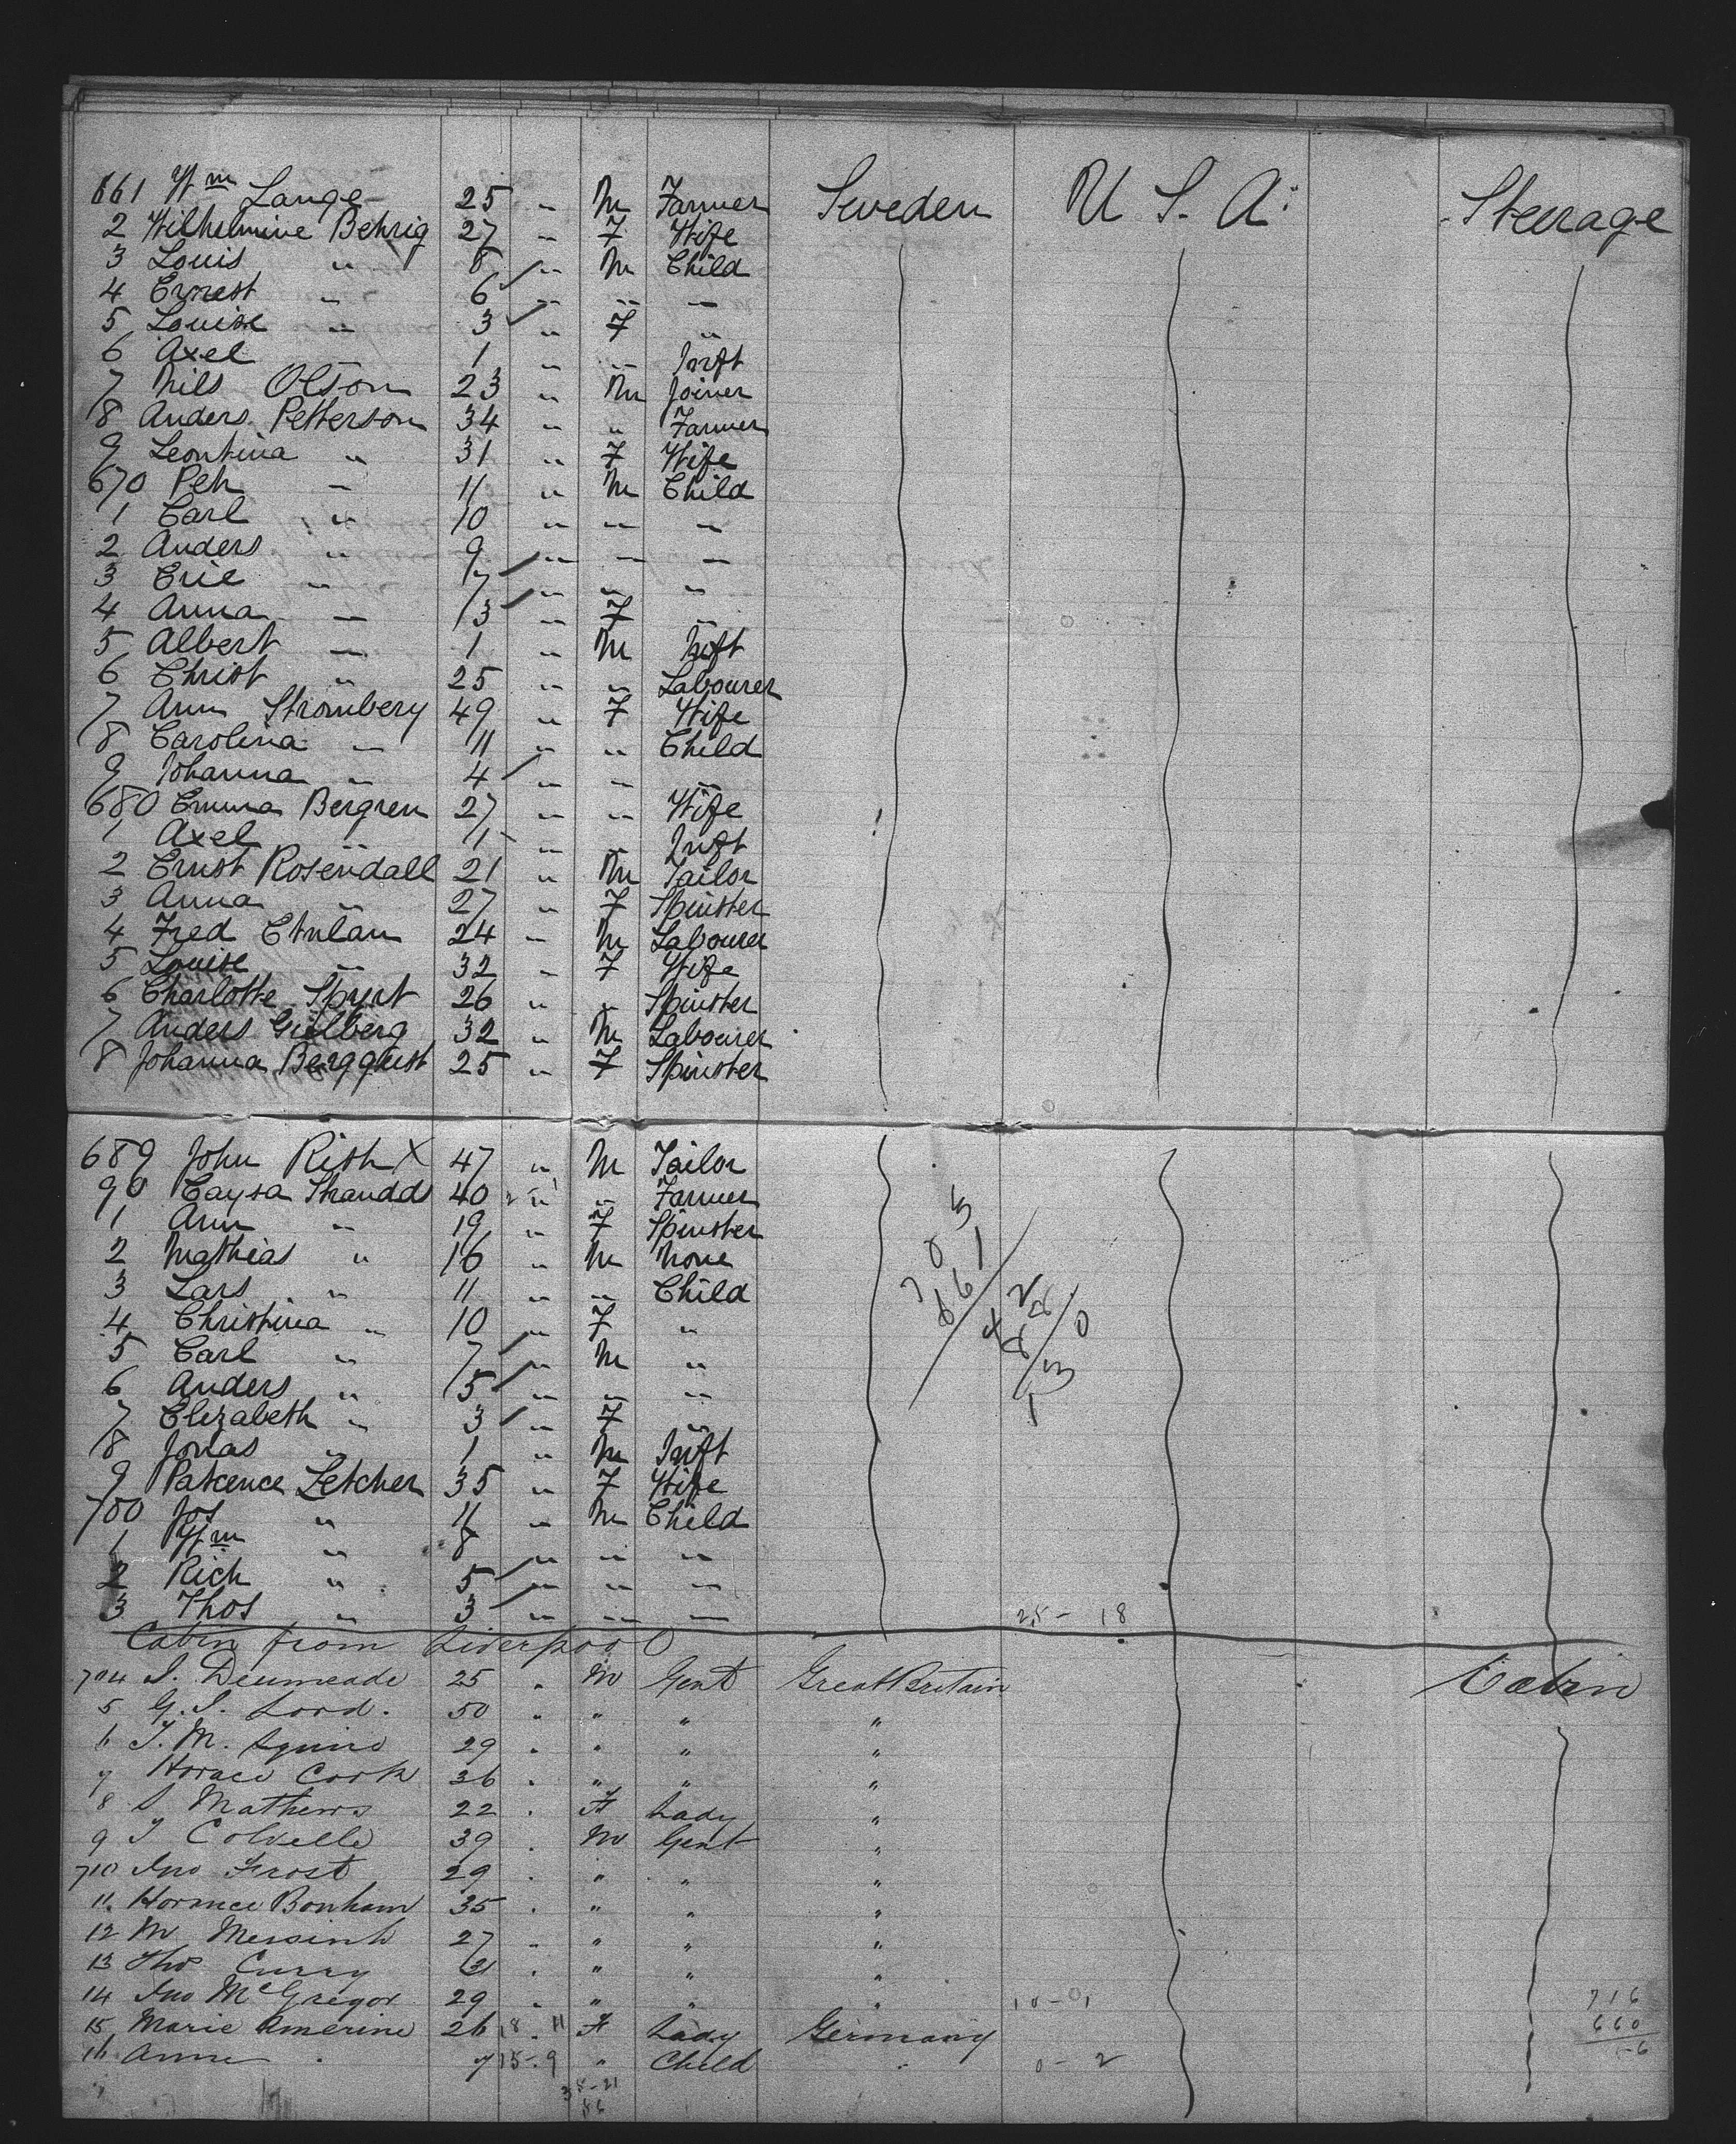 661 Wm Lange 25 " M Farmer Sweden U S. A. Steerage
2 Wilhelmine Behrig 27 " F Wife
3 Louis " 8 " M Child
4 Ernest " 6 " " "
5 Louise " 3 " F "
6 Axel 1 " " Inft
7 Nils Olson 23 " M Joiner
8 Anders Petterson 34 " " Farmer
9 Leontina " 31 " F Wife
670 Petr " 11 " M Child
1 Carl " 10 " " "
2 Anders " 9 " " "
3 Eric " 7 " " "
4 Anna " 3 " F "
5 Albert " 1 " M Inft
6 Christ " 25 " " Labourer
7 Ann Strombery 49 " F Wife
8 Carolina " 11 " " Child
9 Johanna " 4 " " "
680 Emma Bergren 27 " " Wife
1 Axel " 1 " " Inft
2 Ernst Rosendall 21 " M Tailor
3 Anna " 27 " F Spinster
4 Fred 24 " M Labourer
5 Louise " 32 " F Wife
6 Charlotte 26 " " Spinster
7 Anders Gullberg 32 " M Labourer
8 Johanna Bergquist 25 " F Spinster
689 John Rish X 47 " M Tailor
90 Caysa Strandd 40 " " Farmer
1 Ann " 19 " F Spinster
2 Mathias " 16 " M None
3 Lars " 11 " " Child
4 Christina " 10 " F "
5 Carl " 7 " M "
6 Anders " 5 " " "
7 Elizabeth " 3 " F "
8 Jonas " 1 " M Inft
9 Patience Letcher 35 " F Wife
700 Jos " 11 " M Child
1 Wm " 8 " " "
2 Rich " 5 " " "
3 Thos " 3 " " "
25 - 18
Cabin from Liverpool
704 25 " M Gent Great Britain Cabin
5 G. S. Lord. 50 " " " "
6 J. M. Squire 29 " " " "
7 Horace Cook 36 " " " "
8 S Mathews 22 " F Lady "
9 J Colville 39 " M Gent "
710 Jno Frost 29 " " " "
11 Horance Bonham 35 " " " "
12 M 27 " " " "
13 Thos Curry 31 " " " "
14 Jno McGregor 29 " " " "
15 Marie Amerine 26 " F Lady Germany
16 Anne " 7 " " Child "
716
660